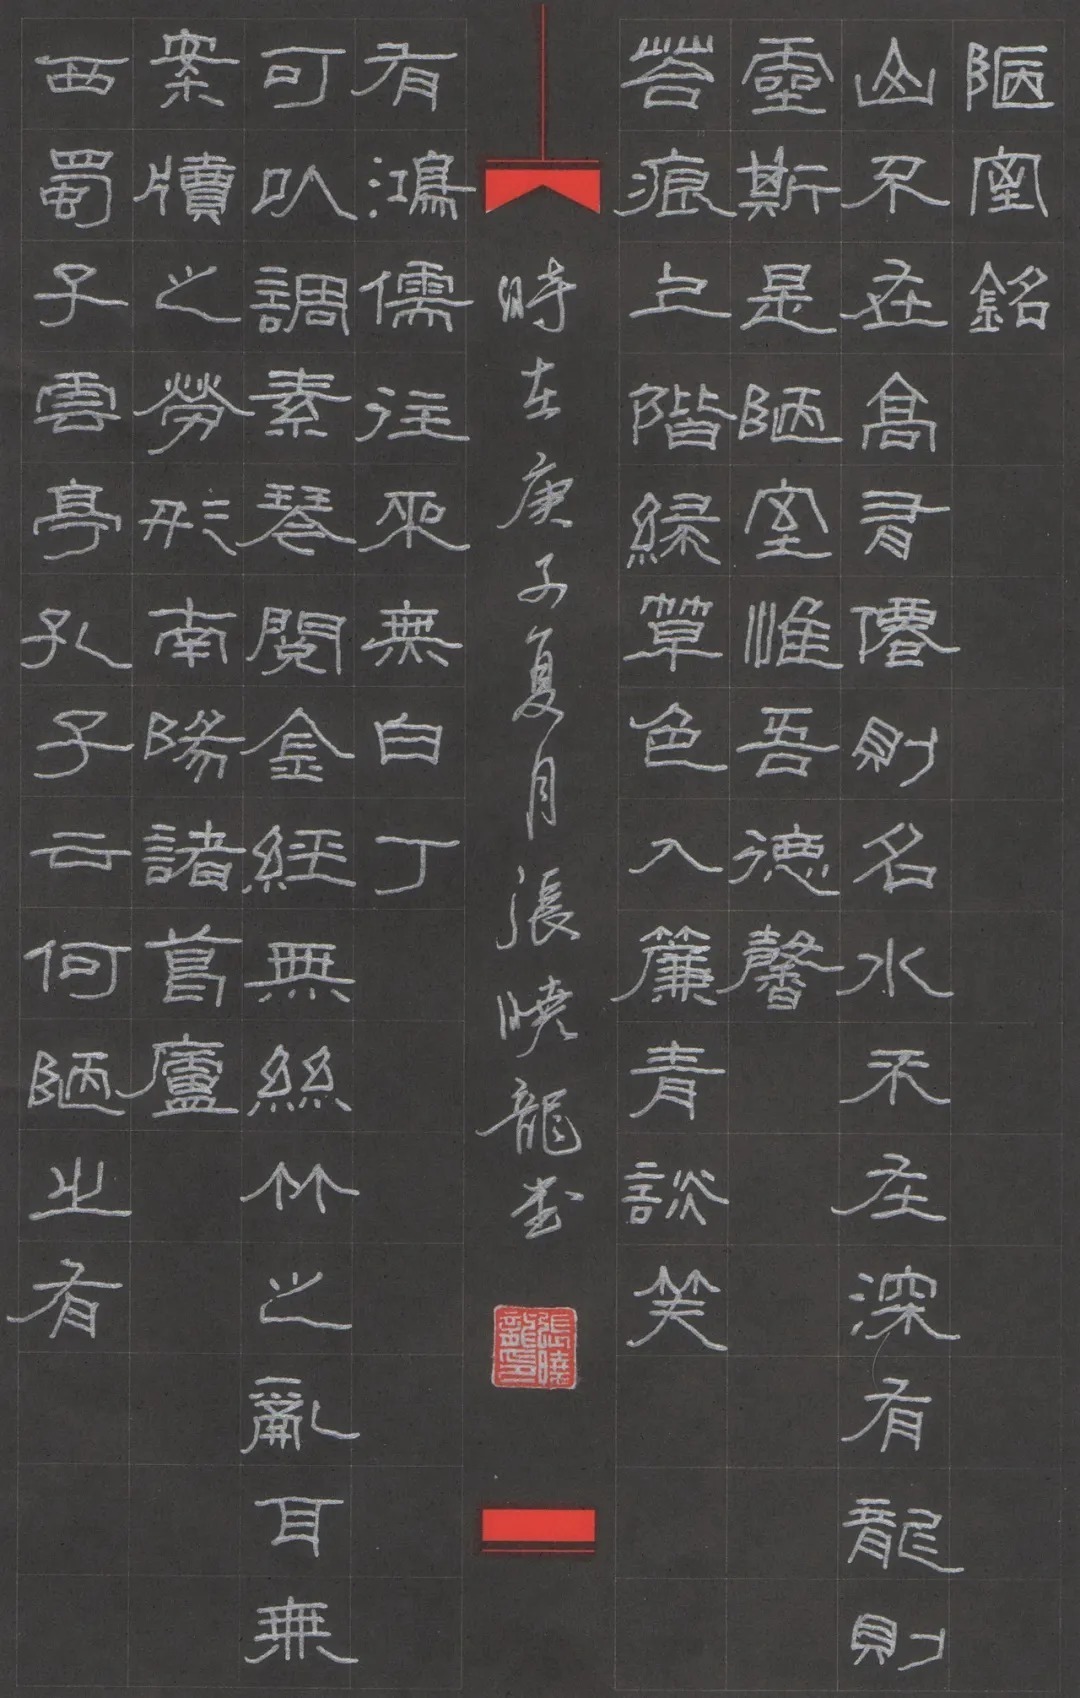 陋室銘
山不在高有僊則名水不在深有龍則
靈斯是陋室惟吾德馨
苔痕上階緑草色入簾青談笑
有鴻儒往來無白丁
可以調素琴閱金經無絲竹之亂耳無
案牘之勞形南陽諸葛廬
西蜀子雲亭孔子云何陋之有
時在庚子夏月張曉龍書
張曉龍印